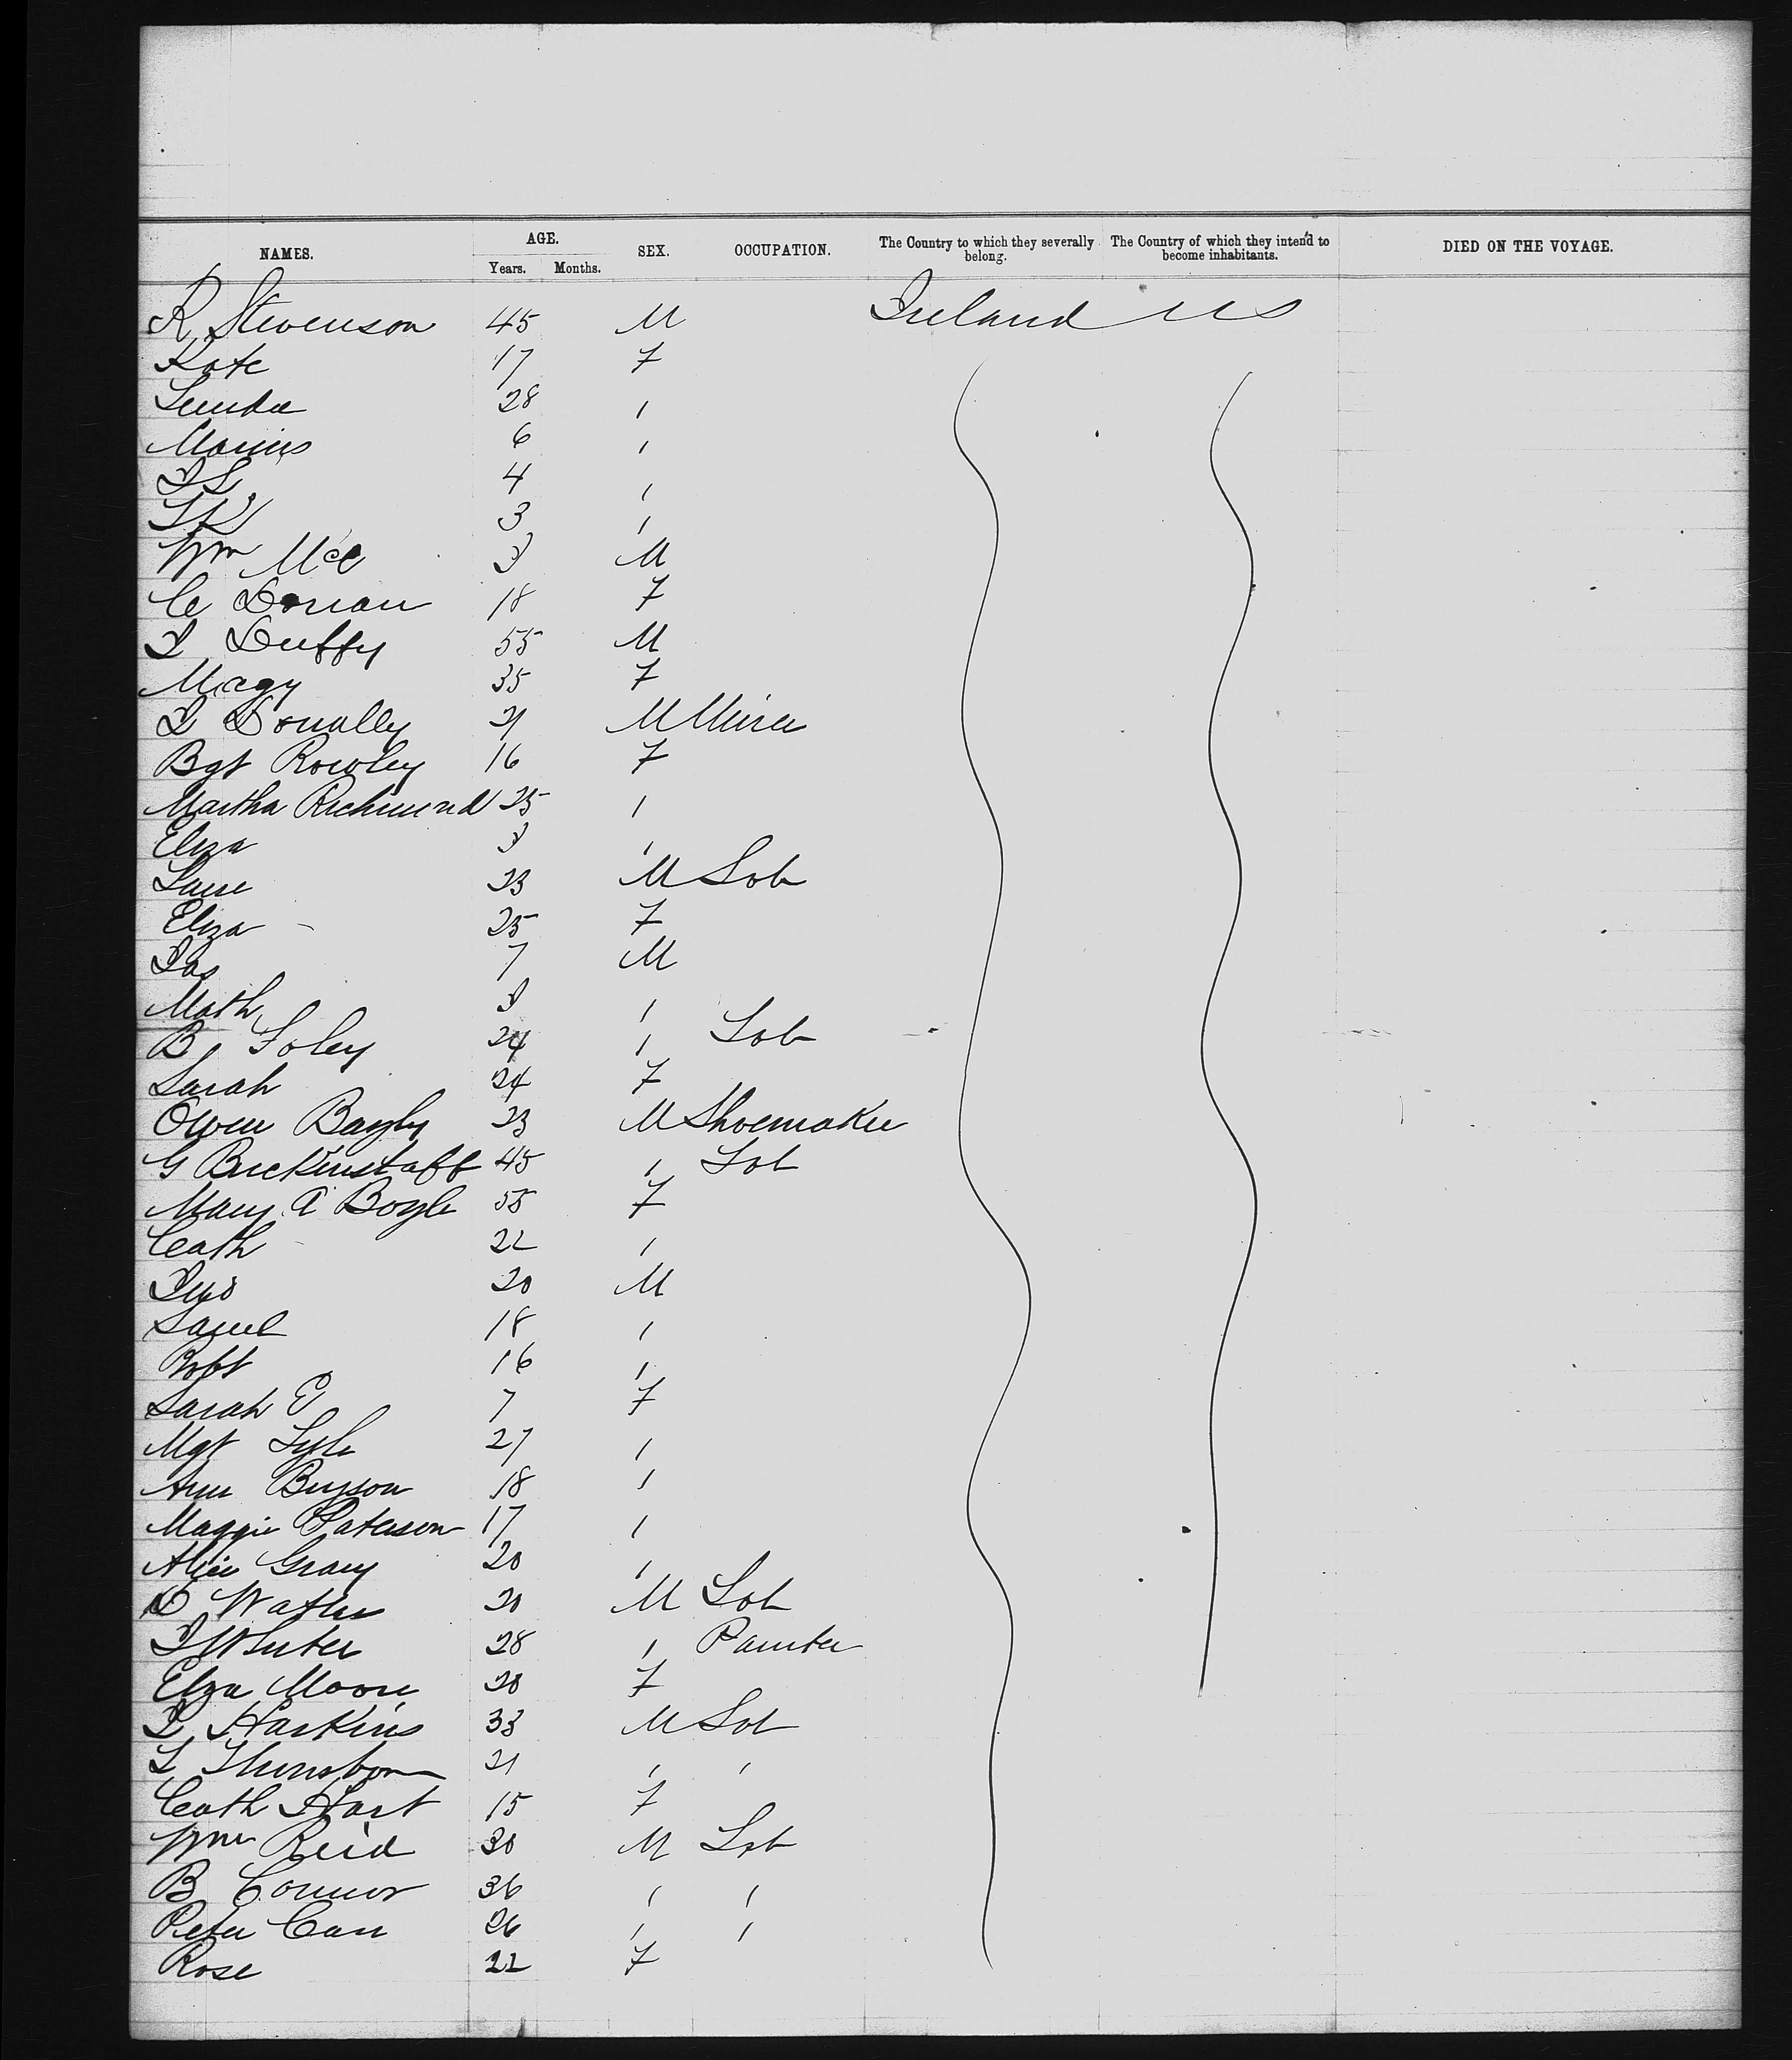 NAMES. AGE. SEX. OCCUPATION. The Country to which they severally belong. The Country of which they intend to become inhabitants. DIED ON THE VOYAGE.
Years. Months.
R Stevenson 45 M Ireland US
Kate 17 F
28 "
6 "
4 "
3 "
Wm McC 3 M
C Dorian 18 F
D Duffy 55 M
Magy 35 F
D Donally 21 M Miner
Bgt Rowley 16 F
Martha Richmond 25 "
Eliza 3 "
23 M Lab
Eliza 25 F
Jas 7 M
Math 3 "
B Foley 24 " Lab
Sarah 24 F
Owen Bayly 23 M Shoemaker
G Buckinstaff 45 " Lab
Mary A Boyle 55 F
Cath 22 "
20 M
Saml 18 "
Robt 16 "
Sarah E 7 F
Mgt Lyle 27 "
Ann Bryson 18 "
Maggie Paterson 17 "
Alice Gray 20 "
20 M Lab
28 " Painter
Elza Moore 20 F
Harkins 33 M Lab
21 " "
Cath Hart 15 F
Wm Reid 30 M Lab
B Connor 36 " "
Peter Carr 26 " "
Rose 22 F